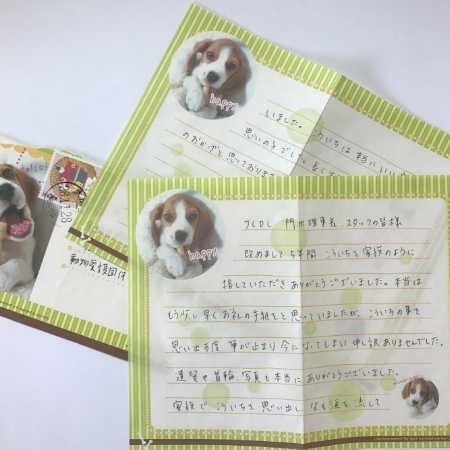 happy
いました。
思いの子でした。
のおかげと思っております
happy
スタッフの皆様
改めまして 5年間 こういちを家族のように
接していただき ありがとうございました。本当は
もう少し早くお礼の手紙をと思っていましたが、こういちの事を
思い出す度 筆が止まり 今になってしまい 申し訳ありませんでした。
遺骨や首輪、写真も本当に ありがとうございました。
家族で こういちを思い出し なも涙を流して
28
動物愛護団体